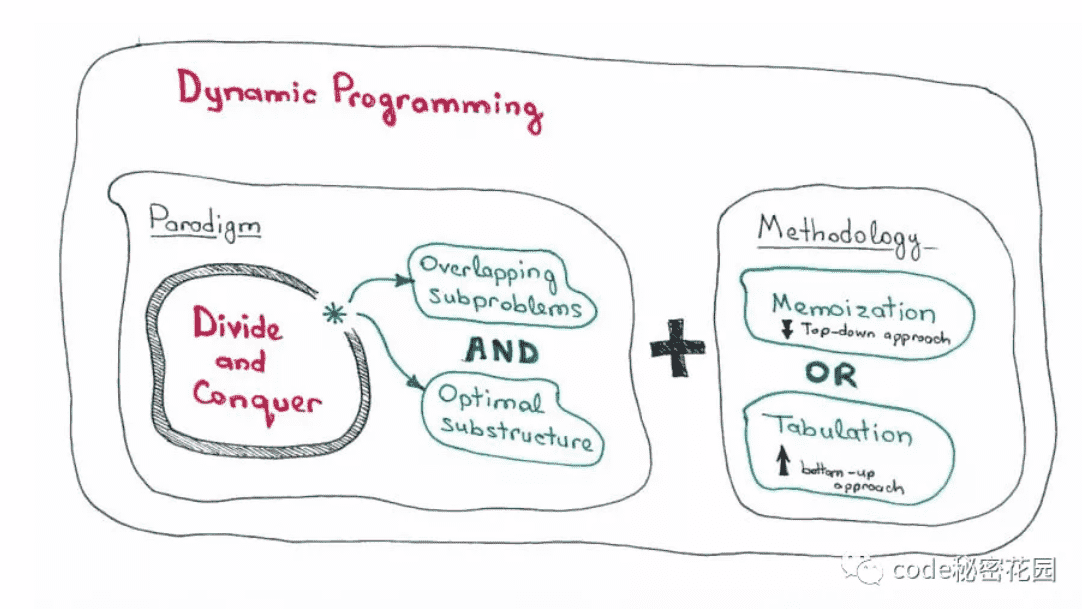 Dynamic Programming
Paradigm
Divide
and
Conquer
*
Overlapping
subproblems
AND
Optimal
substructure
+
Methodology
Memoization
Top-down approach
OR
Tabulation
bottom-up
approach
code秘密花园